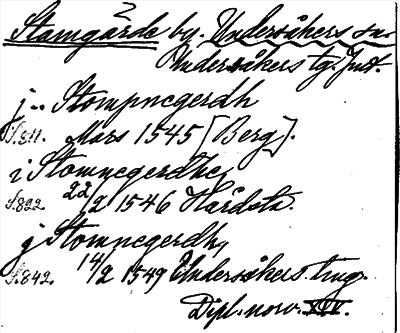 Stamgärde by. Undersåkers sn.
2
Undersåkers tg. Jmt.
j .. Stompnegerdh
S. 811. Mars 1545 [Berg].
i Stomnegerdhe,
S. 822. 22/2 1546 Hårsta.
j Stomnegerdh,
S. 842. 14/2 1549 Undersåkers ting.
Dipl. norv. XIV.